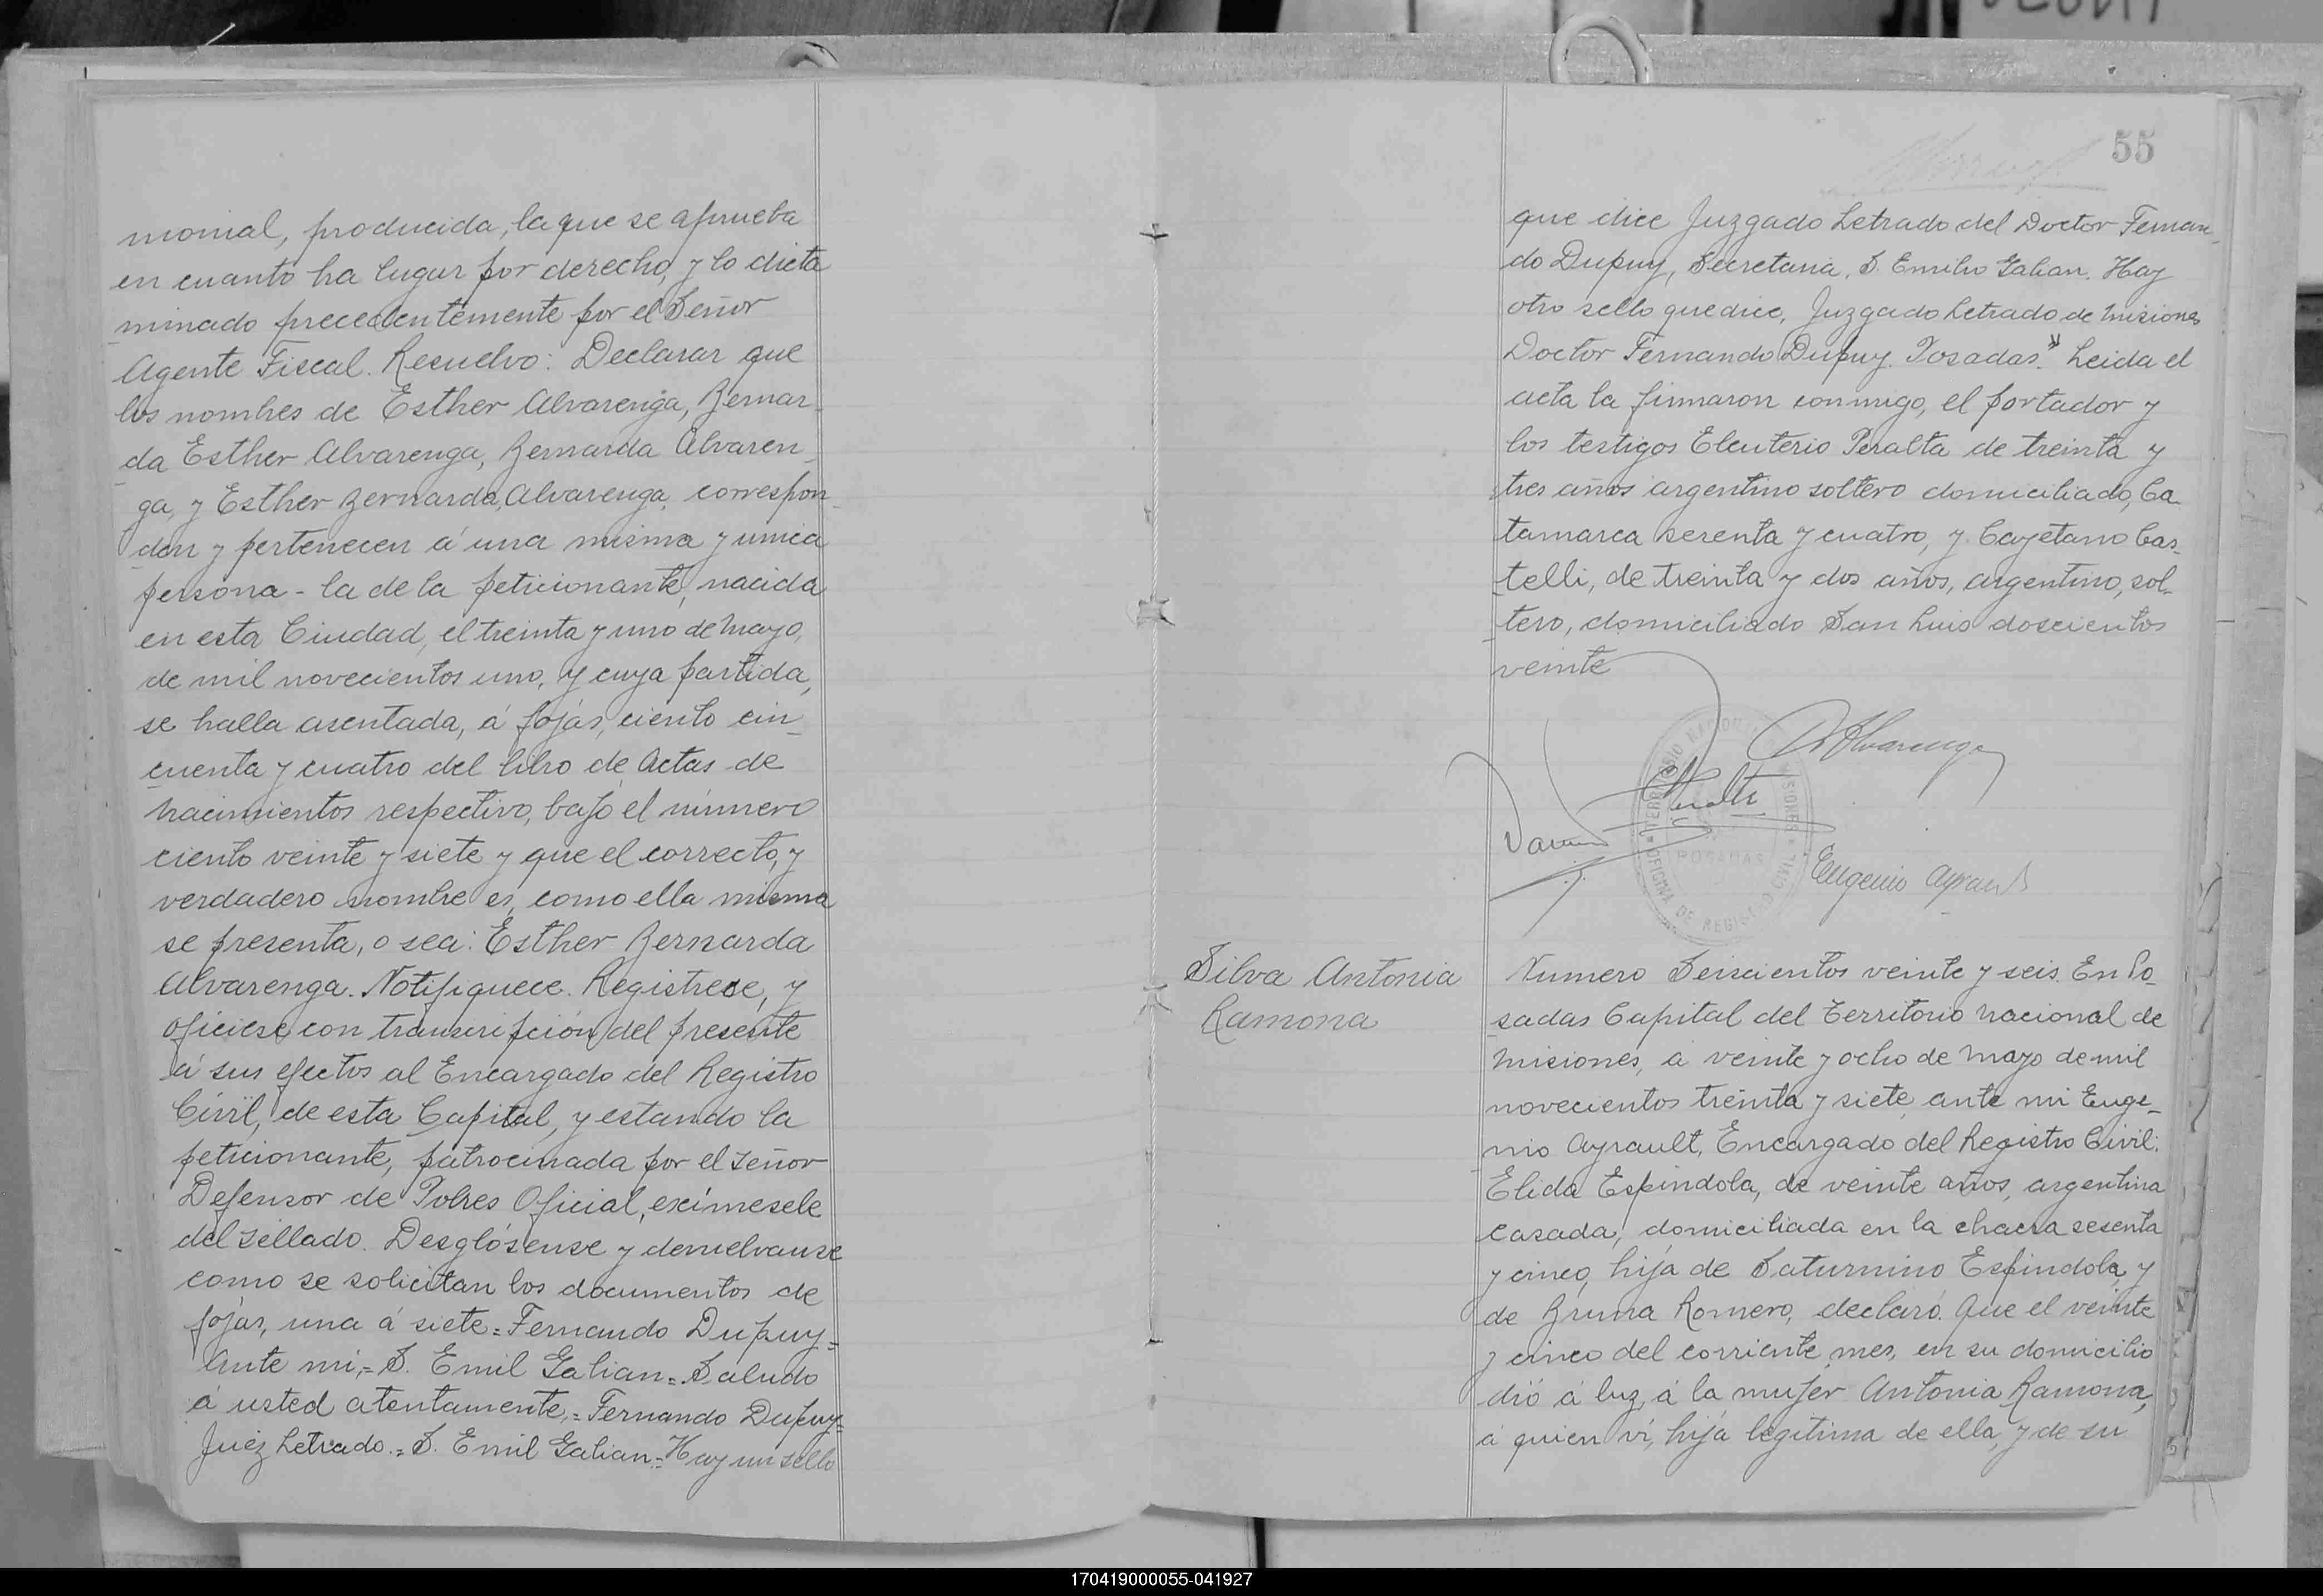 monial, producida, la que se aprueba
en cuanto ha lugar por derecho, y lo dicta
minado precedentemente por el Señor
Agente Fiscal. Resuelvo: Declarar que
los nombres de Esther Alvarenga, Bernar_
da Esther Alvarenga, Bernarda Alvaren_
ga, y Esther Bernarda, Alvarenga, correspon_
den y pertenecen á una misma y unica
persona - la de la peticionante, nacida
en esta Ciudad, el treinta y uno de Mayo,
de mil novecientos uno, y cuya partida,
se halla asentada, á fojas, ciento cin_
cuenta y cuatro del libro de Actas de
Nacimientos respectivo, bajo el número
ciento veinte y siete y que el correcto, y
verdadero nombre es, como ella misma
se presenta, o sea: Esther Bernarda
Alvarenga. Notifiquece. Registrese, y
oficiese con transcripción del presente
á sus efectos al Encargado del Registro
Civil, de esta Capital, y estando la
peticionante, patrocinada por el señor
Defensor de Pobres Oficial, exímesele
del sellado. Desglósense y devuelvanse
como se solicitan los documentos de
fojas, una á siete = Fernando Dupuy =
Ante mi, = S. Emil Galian = Saludo
á usted atentamente, = Fernando Dupuy =
Juez Letrado. = S. Emil Galian = Hay un sello
55
que dice Juzgado Letrado del Doctor Fernan_
do Dupuy, Secretaria, S. Emilio Galian. Hay
otro sello que dice, Juzgado Letrado de Misiones
Doctor Fernando Dupuy. Posadas." Leida el
acta la firmaron conmigo, el portador y
los testigos Eleuterio Peralta de treinta y
tres años argentino soltero domiciliado, Ca_
tamarca sesenta y cuatro, y Cayetano Cas_
telli, de treinta y dos años, argentino, sol_
tero, domiciliado San Luis doscientos
veinte
Alvarenga
Eugenio Ayrault
TERRITORIO NACIONAL MISIONES
POSADAS
OFICINA DE REGISTRO CIVIL
Silva Antonia
Ramona
Numero Seiscientos veinte y seis. En Po_
sadas Capital del Territorio Nacional de
Misiones, a veinte y ocho de Mayo de mil
novecientos treinta y siete, ante mi Euge_
nio Ayrault, Encargado del Registro Civil:
Elida Espindola, de veinte años, argentina
casada, domiciliada en la chacra sesenta
y cinco, hija de Saturnino Espindola, y
de Bruna Romero, declaró. Que el veinte
y cinco del corriente mes, en su domicilio
dió á luz, á la mujer Antonia Ramona,
á quien ví, hija legitima de ella, y de su
170419000055-041927